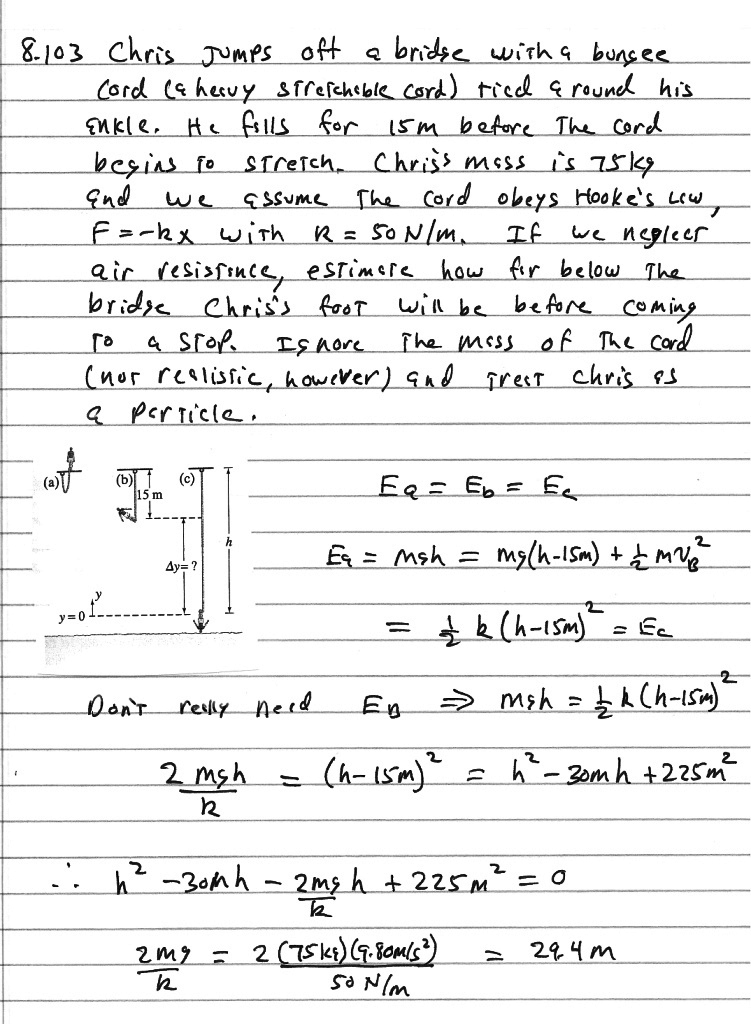 8.103 Chris jumps off a bridge with a bungee
cord (a heavy stretchable cord) tied around his
ankle. He falls for 15m before the cord
begins to stretch. Chris's mass is 75kg
and we assume the cord obeys Hooke's Law,
F = -kx with k = 50 N/m. If we neglect
air resistance, estimate how far below the
bridge Chris's foot will be before coming
to a stop. Ignore the mass of the cord
(not realistic, however) and treat Chris as
a particle.
(a) (b) (c)
15 m
h
Δy = ?
y
y = 0
Ea = Eb = Ec
Ea = mgh = mg(h-15m) + 1/2 mv_B²
= 1/2 k (h-15m)² = Ec
Don't really need EB ⇒ mgh = 1/2 k (h-15m)²
2mgh/k = (h-15m)² = h² - 30mh + 225m²
∴ h² - 30mh - 2mg/k h + 225m² = 0
2mg/k = 2(75kg)(9.80m/s²)/50 N/m = 29.4 m